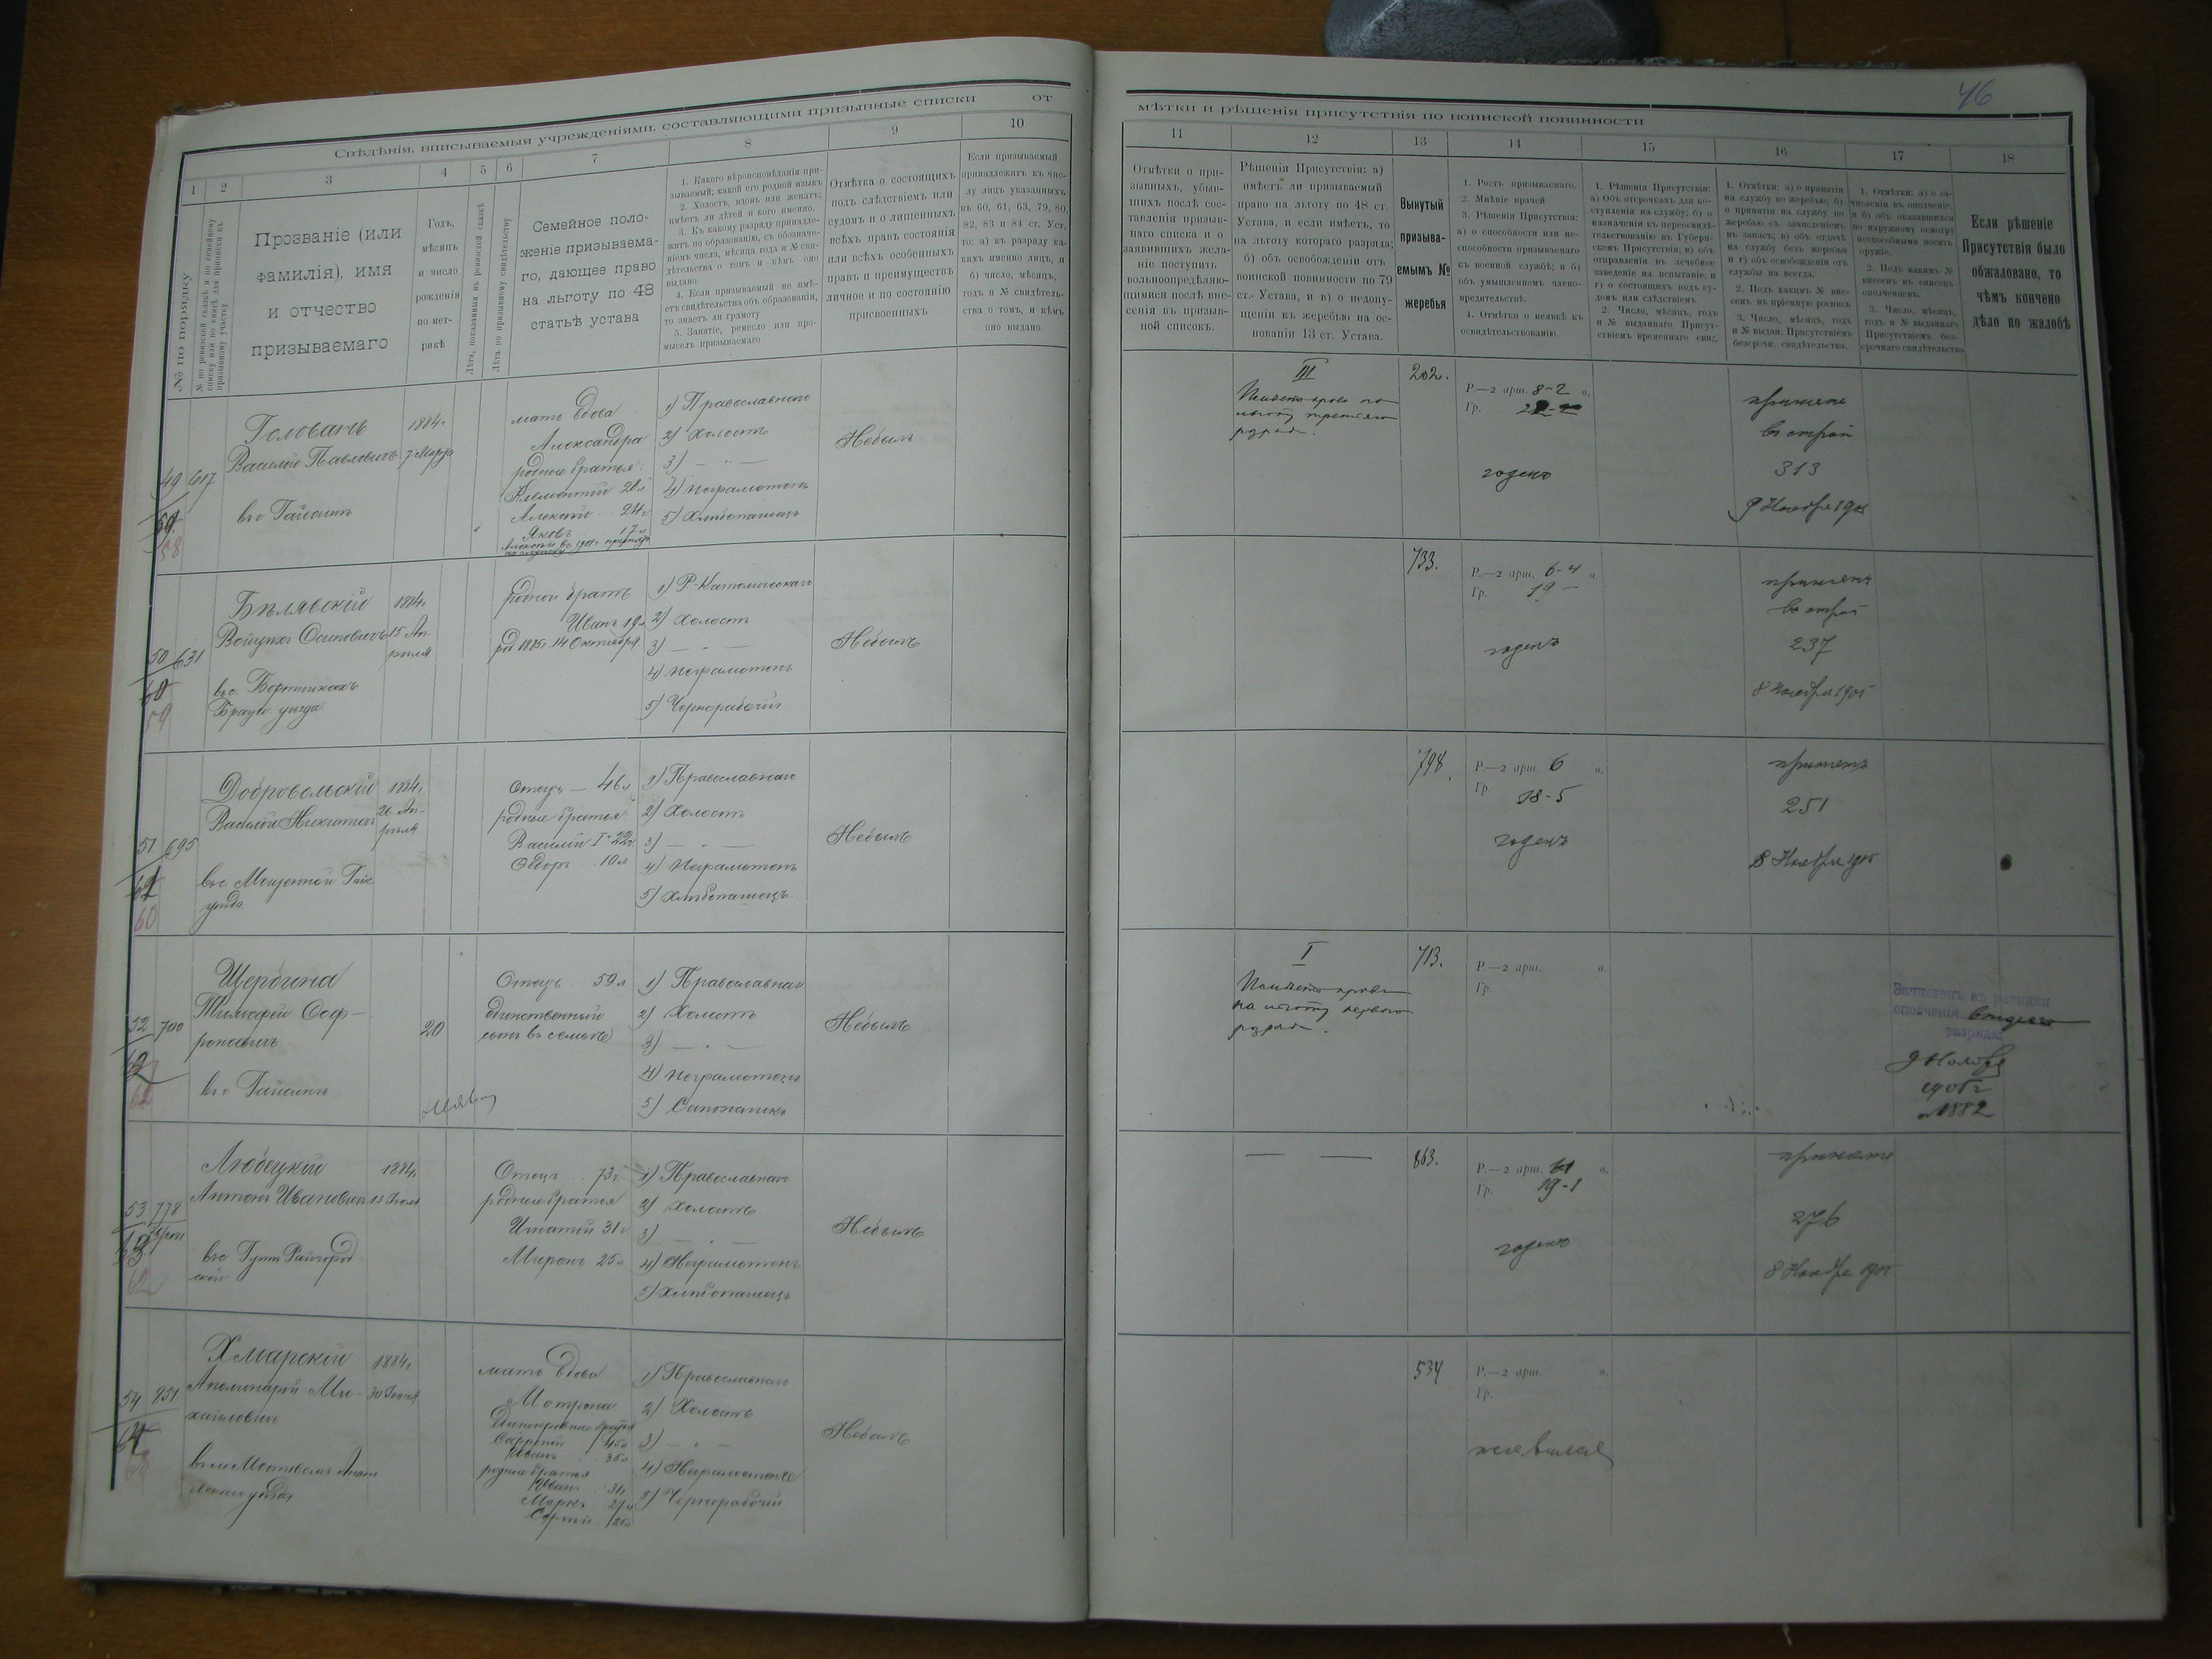 46
Свѣдѣнія, вписываемыя учрежденіями, составляющими призывные списки от
мѣтки и рѣшенія присутствія по воинской повинности
1 2 3 4 5 6 7 8 9 10
11 12 13 14 15 16 17 18
№ по порядку
Прозваніе (или
фамилія), имя
и отчество
призываемаго
Годъ,
мѣсяцъ
и число
рожденія
по мет-
рикѣ
Лѣта, показанныя въ ревизской сказкѣ
Лѣта по призывному свидѣтельству
Семейное поло-
женіе призываема-
го, дающее право
на льготу по 48
статьѣ устава
1. Какого вѣроисповѣданія при-
зываемый; какой его родной языкъ
2. Холостъ, вдовъ или женатъ;
имѣетъ ли дѣтей и кого именно.
3. Къ какому разряду принадле-
житъ по образованію, съ обозначе-
ніемъ числа, мѣсяца года и № сви-
дѣтельства о томъ и кѣмъ оно
выдано
4. Если призываемый не имѣ-
етъ свидѣтельства объ образованіи,
то знаетъ ли грамоту
5. Занятіе, ремесло или про-
мыселъ призываемаго
Отмѣтка о состоящихъ
подъ слѣдствіемъ или
судомъ и о лишенныхъ
всѣхъ правъ состоянія
или всѣхъ особенныхъ
правъ и преимуществъ
личное и по состоянію
присвоенныхъ
Если призываемый
принадлежитъ къ чис-
лу лицъ указанныхъ
въ 60, 61, 63, 79, 80,
82, 83 и 84 ст. Уст.
то: а) къ разряду ка-
кихъ именно лицъ, и
б) число, мѣсяцъ,
годъ и № свидѣтель-
ства о томъ, и кѣмъ
оно выдано
Отмѣтки о при-
зывныхъ, убыв-
шихъ послѣ сос-
тавленія призыв-
наго списка и о
заявившихъ жела-
ніе поступить
вольноопредѣляю-
щимися послѣ вне-
сенія въ призыв-
ной списокъ.
Рѣшенія Присутствія: а)
имѣетъ ли призываемый
право на льготу по 48 ст.
Устава, и если имѣетъ, то
на льготу котораго разряда;
б) объ освобожденіи отъ
воинской повинности по 79
ст. Устава, и в) о недопу-
щеніи къ жеребью на ос-
нованіи 13 ст. Устава.
Вынутый
призыва-
емымъ №
жеребья
1. Ростъ призываемаго.
2. Мнѣніе врачей
3. Рѣшенія Присутствія:
а) о способности или не-
способности призываемаго
къ военной службѣ; и б)
объ умышленномъ члено-
вредительствѣ.
4. Отмѣтки о неявкѣ къ
освидѣтельствованію.
1. Рѣшенія Присутствія:
2. Число, мѣсяцъ, годъ
и № выданнаго Присут-
ствіемъ временнаго свид.
1. Отмѣтки: а) о принятіи
на службу по жеребью; б)
о принятіи на службу по
жеребью съ зачисленіемъ
въ запасъ; в) объ отдачѣ
на службу безъ жеребья
и г) объ освобожденіи отъ
службы на всегда.
2. Подъ какимъ № вне-
сенъ въ пріемную роспись
3. Число, мѣсяцъ, годъ
и № выдан. Присутствіемъ
безсрочн. свидѣтельства.
1. Отмѣтки: а) о за-
численіи въ ополченіе,
и б) объ оказавшихся
по наружному осмотру
неспособными носить
оружіе.
2. Подъ какимъ № вне-
сенъ въ списокъ
ополченцевъ.
3. Число, мѣсяцъ,
годъ и № выданнаго
Присутствіемъ без-
срочнаго свидѣтельства
Если рѣшеніе
Присутствія было
обжаловано, то
чѣмъ кончено
дѣло по жалобѣ
49 617
58
Голованъ
Василій Павловичъ
1884г
7 Марта
мать вдова
Александра
родные братья:
Климентій 28л
Алексѣй 24г
Яковъ 17л
1) Православнаго
2) Холостъ
3) — " —
4) Неграмотенъ
5) Хлѣбопашецъ
Небылъ
III
202.
Р.—2 арш. 8-2 в.
Гр.
годенъ
принятъ
въ строй
313
9 Ноября 1905
50 631
59
Бѣлявскій
Войцехъ Осиповичъ
1884г
15 Ап-
рѣля
въ с. Бортникахъ
Брацл. уѣзда.
родной братъ
Иванъ 19л
род 1885г. 14 Октября
1) Р-Католическаго
2) Холостъ
3) — " —
4) Неграмотенъ
5) Чернорабочій
Небылъ
733.
Р.—2 арш. 6-4 в.
Гр. 19 —
годенъ
принятъ
въ строй
237
8 Ноября 1905
51 695
60
Добровольскій
Василій Никитинъ
1884г
26 Ап-
рѣля
уѣзда.
Отецъ — 46л
родные братья:
Василій Iй 22г.
Ѳедоръ 10л
1) Православнаго
2) Холостъ
3) — " —
4) Неграмотенъ
5) Хлѣбопашецъ.
Небылъ
798.
Р.—2 арш. 6 в.
Гр. 18-5
годенъ
принятъ
251
8 Ноября 1905
52 700
Щербина
Тимофей Соф-
роновичъ
20
Отецъ 59л
единственный
сынъ въ семьѣ
1) Православнаго
2) Холостъ
3) — " —
4) Неграмотенъ
5) Сапожникъ
Небылъ
I
713.
Р.—2 арш. в.
Гр.
Зачисленъ въ ратники
ополченія
разряда
9 Ноября
1905г
№1882
53 778
62
Любецкій
Антонъ Ивановичъ
1884г
13 Іюля
Отецъ 73г.
родные братья
Игнатій 31г
Миронъ 25л
1) Православнаго
2) Холостъ
3) — " —
4) Неграмотенъ
5) Хлѣбопашецъ
Небылъ
— —
863.
Р.—2 арш. в.
Гр. 19-1
годенъ
принятъ
276
8 Ноября 1905
54 851
Хмарскій
Аполинарій Ми-
хайловичъ
1884г
мать вдова
Мотрона
родные братья
Иванъ 31г
Маркъ 27л
Сергѣй 25л
1) Православнаго
2) Холостъ
3) — " —
4) Неграмотенъ
5) Чернорабочій
Небылъ
534
Р.—2 арш. в.
Гр.